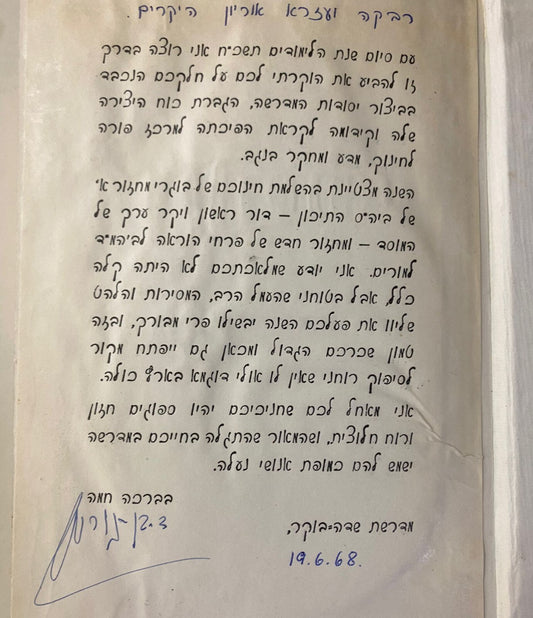 רבקה ועזרא אוריון היקרים.
עם סיום שנת הלימודים תשכ״ח אני רוצה בדרך
זו להביע את הוקרתי לכם על חלקכם הנכבד
בביצור יסודות המדרשה, הגברת כוח היצירה
שלה וקידומה לקראת הפיכתה למרכז פורה
לחינוך, מדע ומחקר בנגב.
השנה מצטיינת בהשלמת חינוכם של בוגרי מחזור א׳
של ביה״ס התיכון – דור ראשון ויקר ערך של
המוסד – ומחזור חדש של פרחי הוראה לביהמ״ד
למורים. אני יודע שמלאכתכם לא היתה קלה
כלל, אבל בטוחני שהעמל הרב, המסירות והלהט
שליוו את פעלכם השנה יבשילו פרי מבורך, ובזה
טמון שכרכם הגדול ומכאן גם ייפתח מקור
לסיפוק רוחני שאין לו אולי דוגמא בארץ כולה.
אני מאחל לכם שחניכיכם יהיו ספוגים חזון
ורוח חלוצית, ושהמאור שהתגלה בחייכם במדרשה
ישמש להם כמופת אנושי נעלה.
בברכה חמה
ד. בן-גוריון
מדרשת שדה-בוקר,
19.6.68.